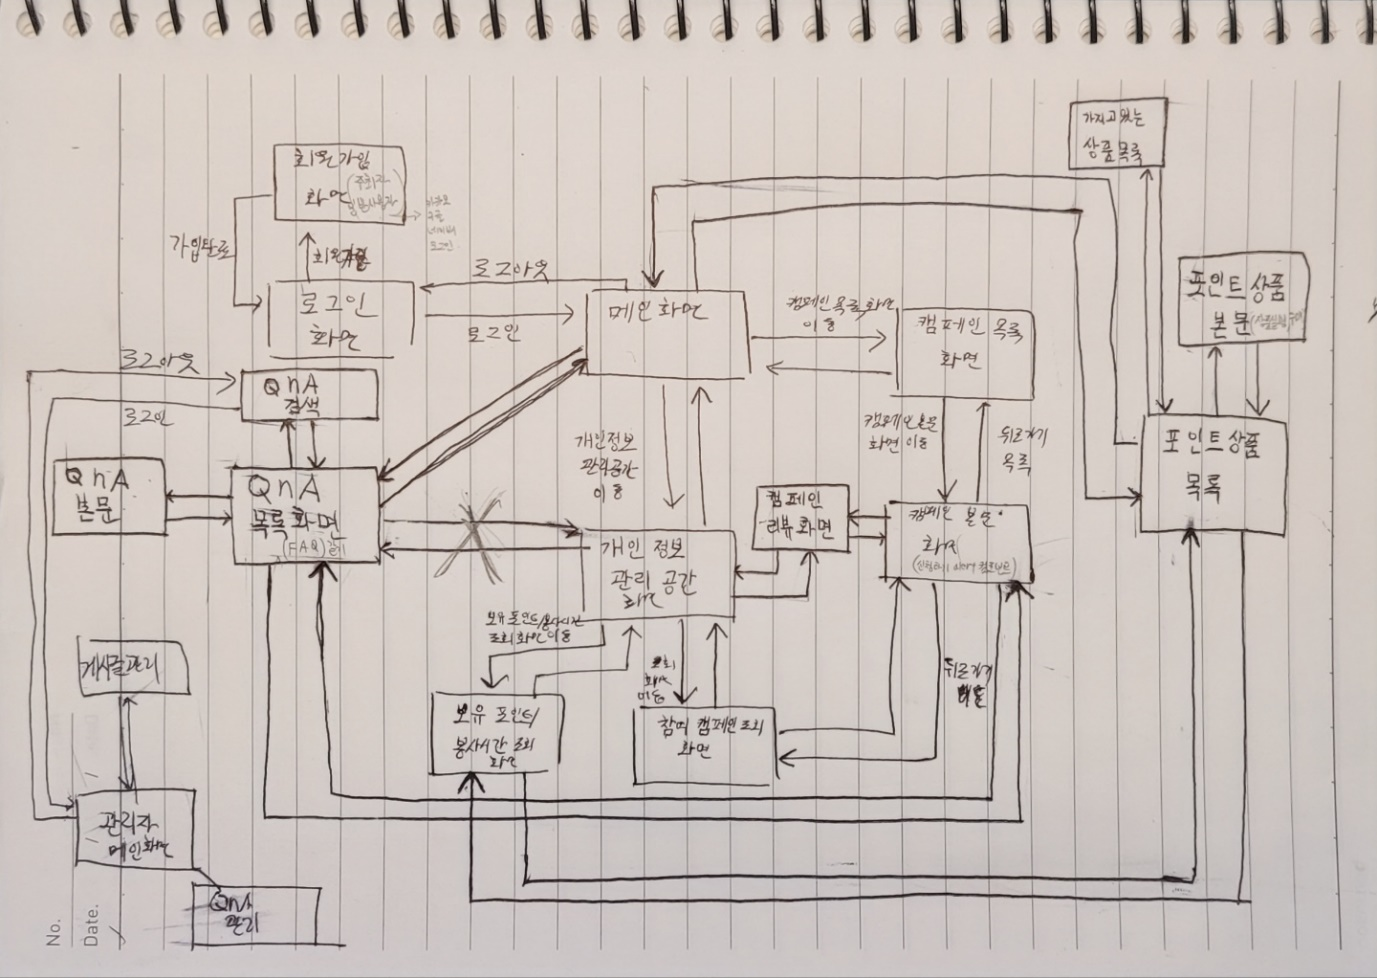 가지고 있는
상품목록
회원가입
화면
(주최자
가입완료
회원가입
로그아웃
로그인
로그인
화면
메인화면
캠페인 목록 화면
이동
캠페인 목록
화면
포인트 상품
본문
로그아웃
로그인
QnA
검색
QnA
본문
QnA
목록화면
(FAQ)
개인정보
관리공간
이동
캠페인본문
화면 이동
뒤로가기
목록
포인트상품
목록
캠페인
리뷰화면
캠페인 본문
화면
개인 정보
관리 공간
화면
보유포인트/봉사시간
조회화면 이동
조회
화면
이동
뒤로가기
게시글관리
보유 포인트/
봉사시간 조회
화면
참여 캠페인조회
화면
관리자
메인화면
QnA
관리
No.
Date.